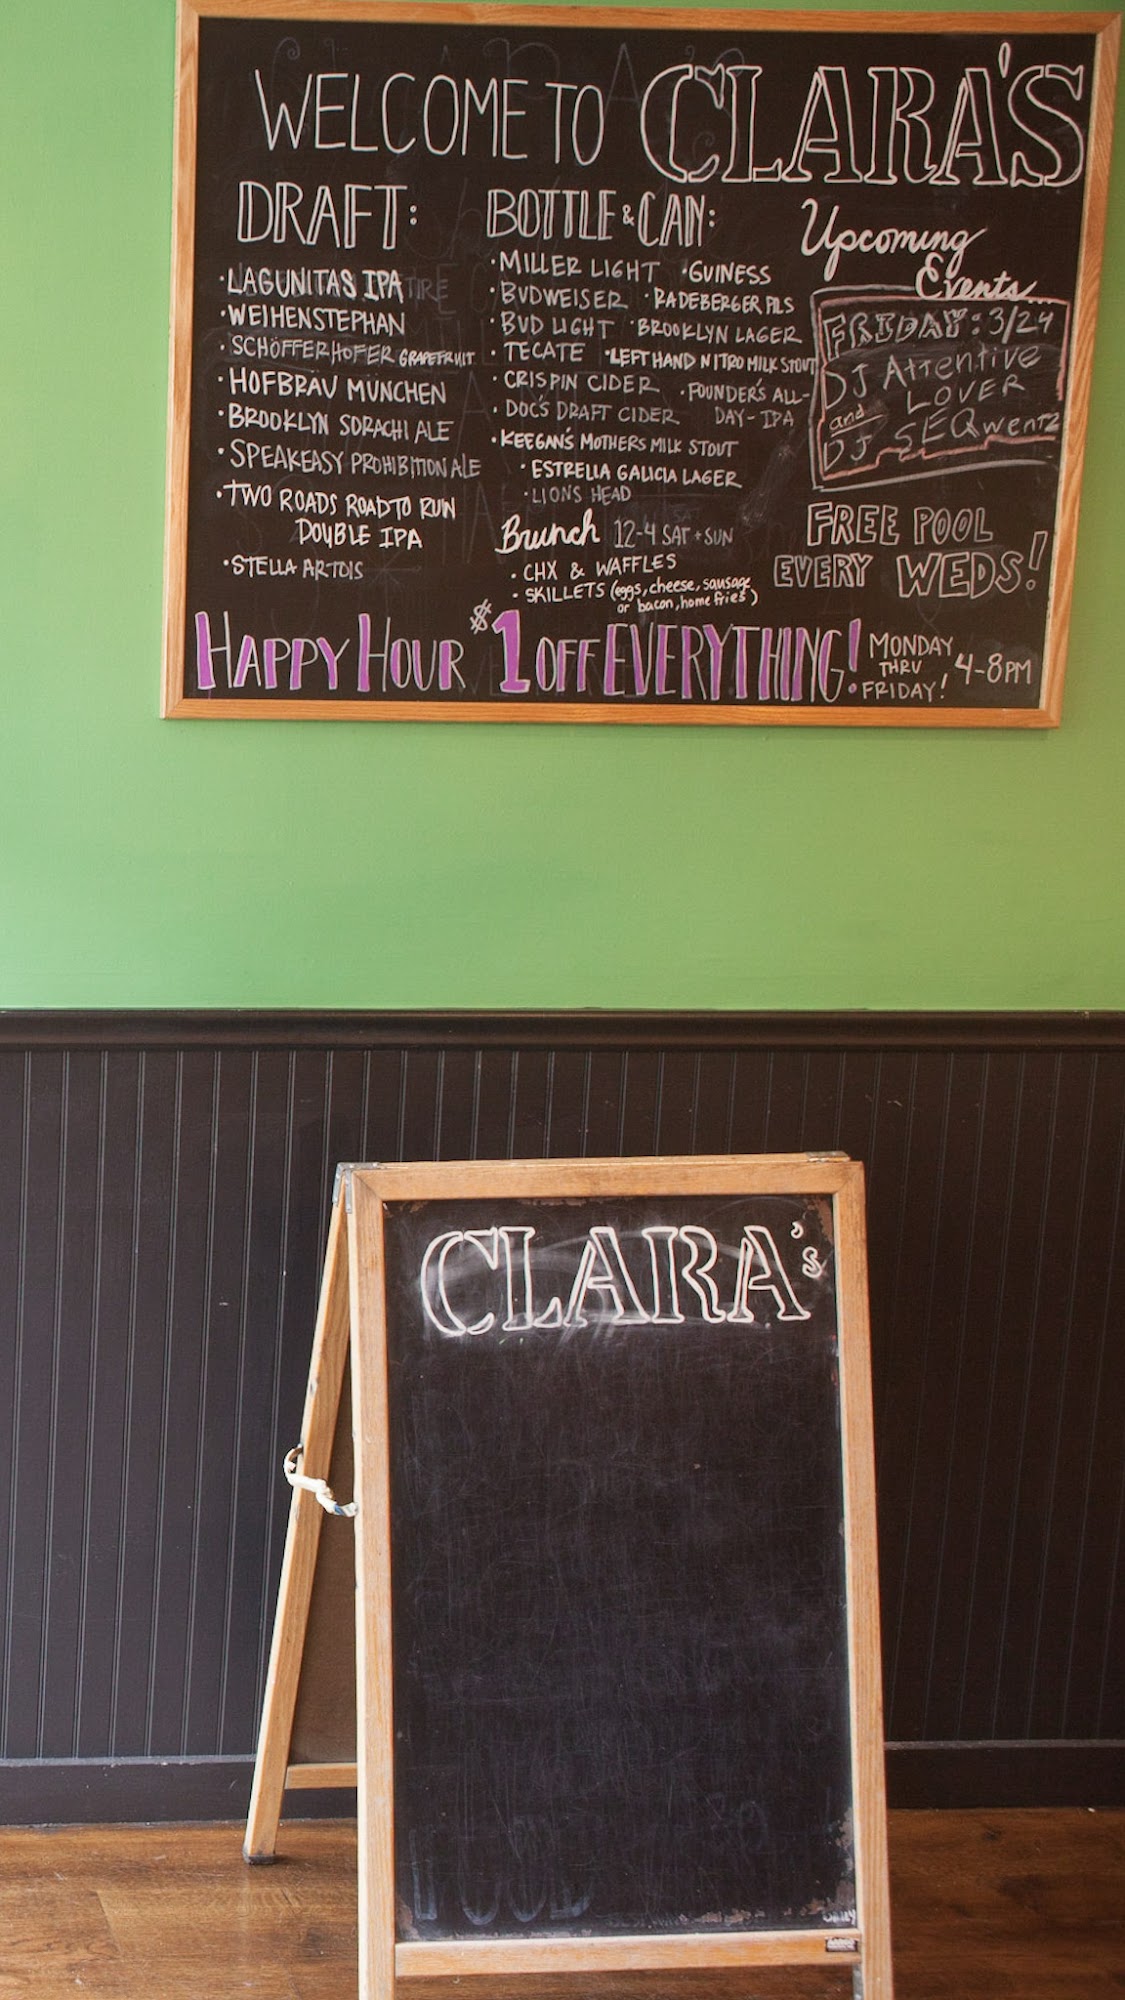 WELCOME TO CLARA'S
DRAFT:
· LAGUNITAS IPA
· WEIHENSTEPHAN
· SCHÖFFERHOFER GRAPEFRUIT
· HOFBRAU MUNCHEN
· BROOKLYN SORACHI ALE
· SPEAKEASY PROHIBITION ALE
· TWO ROADS ROAD TO RUIN
DOUBLE IPA
· STELLA ARTOIS
BOTTLE & CAN:
· MILLER LIGHT · GUINESS
· BUDWEISER · RADEBERGER PILS
· BUD LIGHT · BROOKLYN LAGER
· TECATE · LEFT HAND NITRO MILK STOUT
· CRISPIN CIDER · FOUNDER'S ALL-
· DOC'S DRAFT CIDER DAY-IPA
· KEEGAN'S MOTHERS MILK STOUT
· ESTRELLA GALICIA LAGER
· LIONS HEAD
Brunch 12-4 SAT + SUN
· CHX & WAFFLES
· SKILLETS (eggs, cheese, sausage
or bacon, home fries)
Upcoming
Events...
FRIDAY: 3/24
DJ Attentive
LOVER
and
DJ SEQwentz
FREE POOL
EVERY WEDS!
HAPPY HOUR $1 OFF EVERYTHING! MONDAY
THRU
FRIDAY! 4-8PM
CLARA'S
FOOD